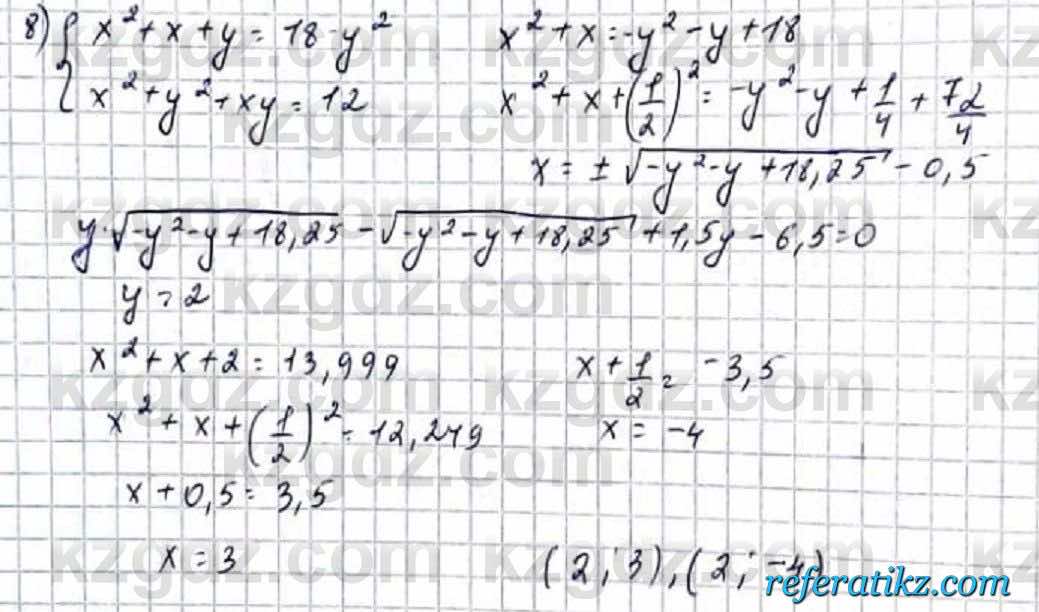 8) { x² + x + y = 18 - y²
x² + y² + xy = 12
x² + x = -y² - y + 18
x² + x + (1/2)² = -y² - y + 1/4 + 72/4
x = ± √(-y² - y + 18,25) - 0,5
y·√(-y² - y + 18,25) - √(-y² - y + 18,25) + 1,5y - 6,5 = 0
y = 2
x² + x + 2 = 13,999
x² + x + (1/2)² = 12,249
x + 0,5 = 3,5
x = 3
x + 1/2 = -3,5
x = -4
(2; 3), (2; -4)
kzgdz.com
referatikz.com